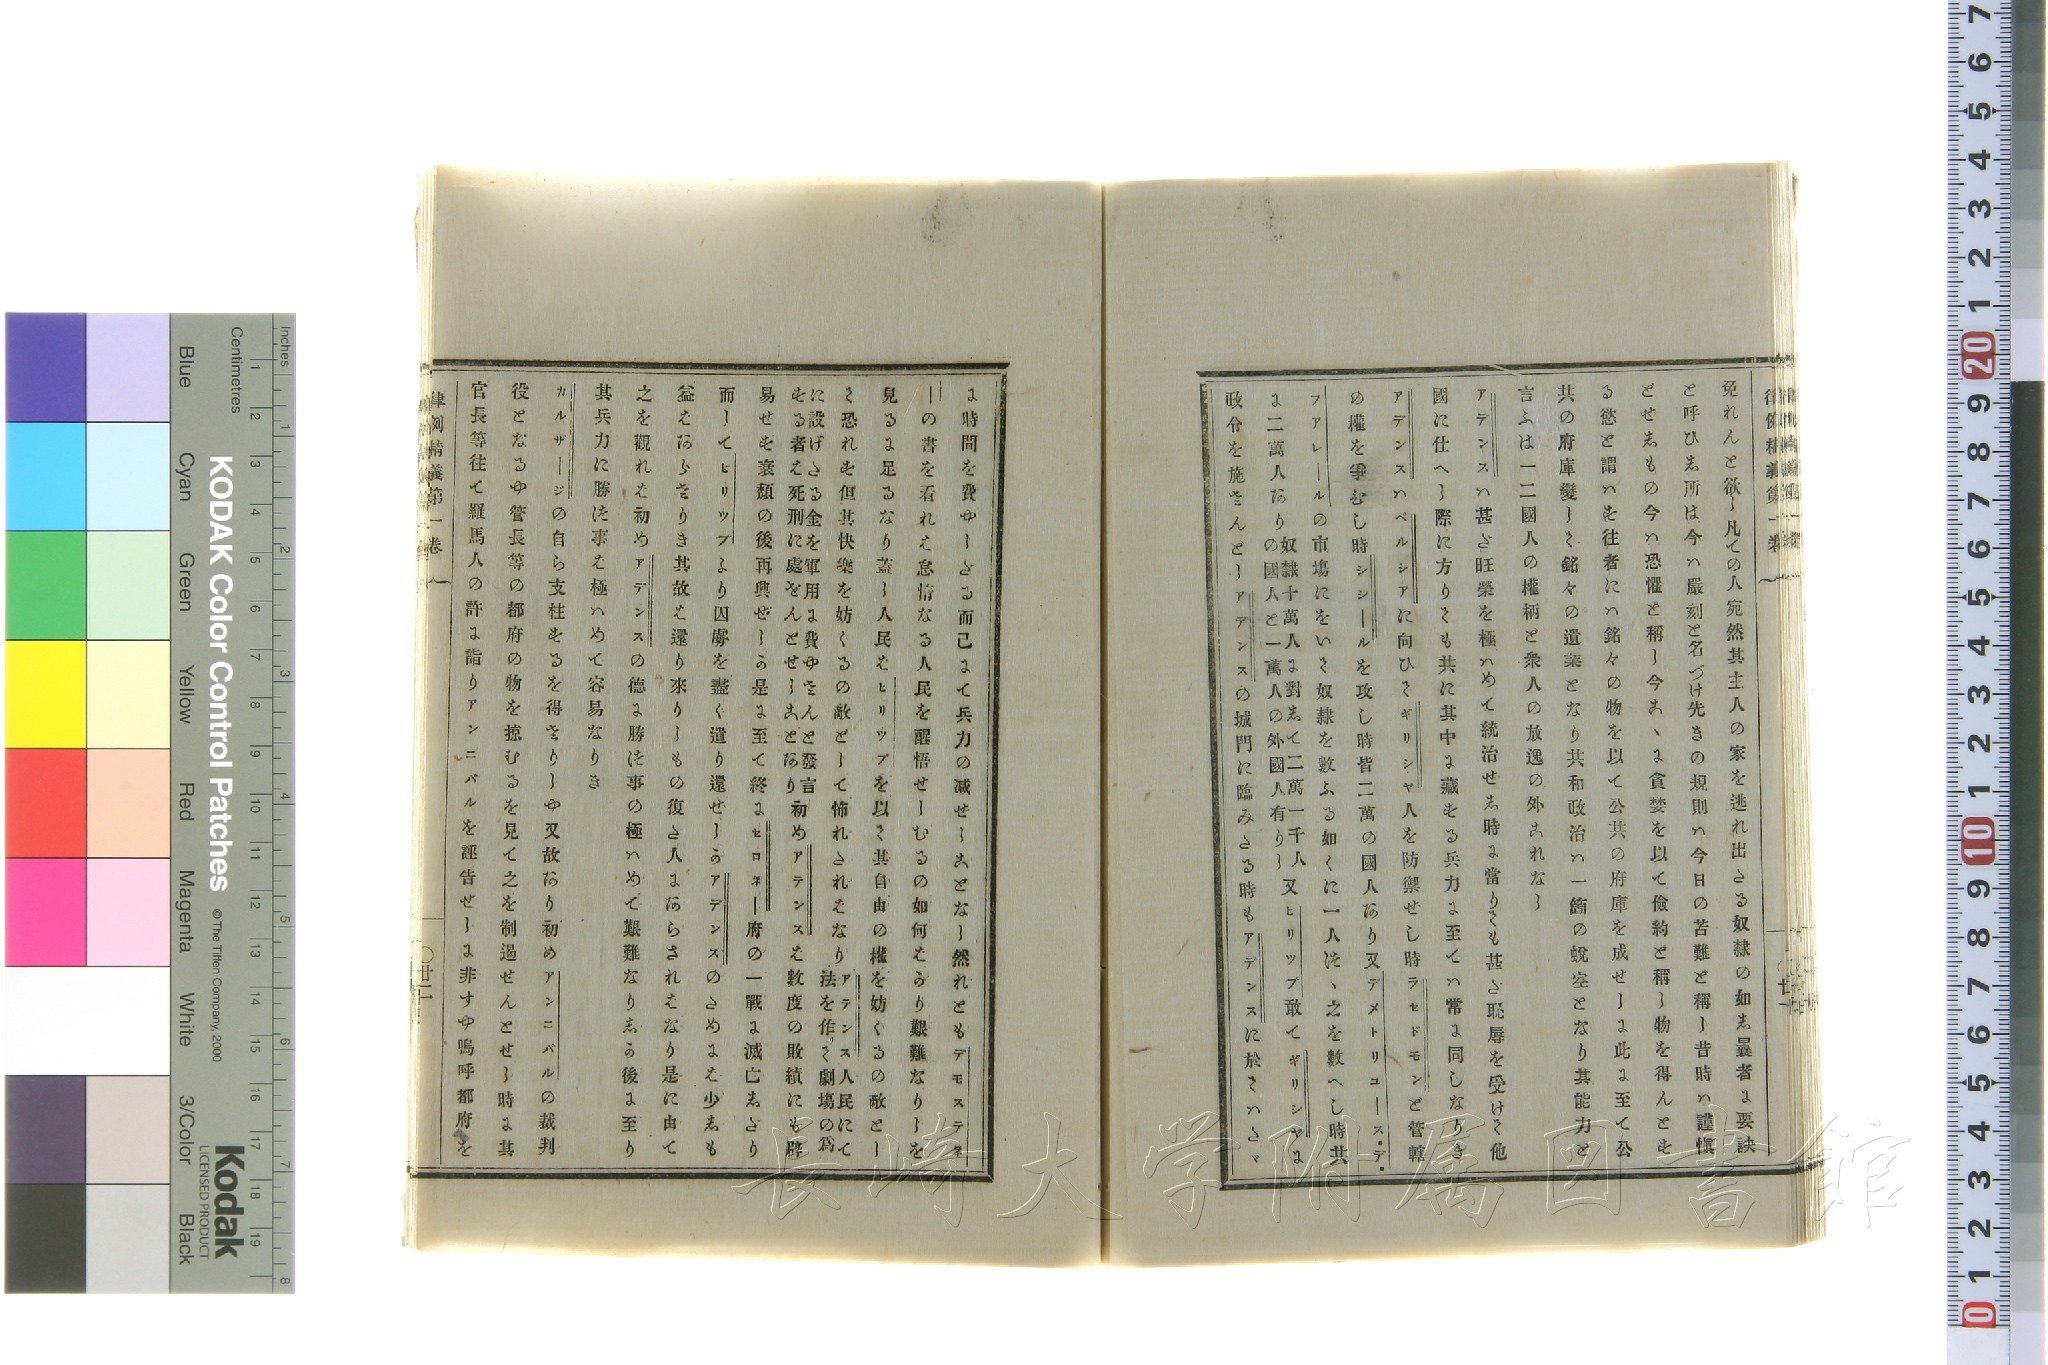 免れんと欲し凡ての人宛然其主人の家を逃れ出さる奴隷の如し曩者ま要訣
と呼ひし所は今ハ嚴刻と名づけ先きの規則ハ今日の苦難と稱し昔時ハ謹愼
とせしもの今ハ恐懼と稱し今しヽま貪婪を以て儉約と稱し物を得んとせ
る慾と謂ハも往者にハ銘々の物を以て公共の府庫を成せしま此ま至て公
共の府庫變しく銘々の遺棄となり共和政治ハ一箇の蛻空となり其能力と
言ふは一二國人の權柄と衆人の放逸の外しれなし
アデンスハ甚さ旺榮を極ハめて統治せし時ま當りくも甚さ耻辱を受けく他
國に仕へし際に方りくも共に其中ま藏せる兵力ま至てハ常ま同しなりき
アデンスハペルシアに向ひくギリシヤ人を防禦せし時ラセドモンと管轄
の權を爭むし時シシールを攻し時皆二萬の國人ゟり又デメトリユース.デ.
フアレールの市塲にをいく奴隷を數ふる如くに一人はヽ之を數へし時共
ま二萬人ゟり の國人と一萬人の外國人有りし 奴隷十萬人ま對して二萬一千人 又ヒリツプ敢てギリシヤま
政令を施さんとしアデンスの城門に臨みさる時もアデンスに於くハさヾ
ま時間を費やしさる而己まて兵力の减せししとなし然れともデモステネ
ーの書を看れえ怠惰なる人民を醒悟せしむるの如何えゟり艱難なりしを
見るま足るなり蓋し人民えヒリツプを以く其自由の權を妨くるの敵とし
く恐れも但其快樂を妨くるの敵として怖れされえなり アテンス人民にて法を作く劇塲の爲
に設げさる金を軍用ま費やさんと發言せる者え死刑に處をんとせししとゟり 初めアテンスえ數度の敗績にも辟
易せも衰頽の後再興せしゟ是ま至て終まセロネー府の一戰ま滅亡しさり
而してヒリツプより囚虜を盡く遣り還せしゟアデンスのさめまえ少しも
益えゟらさりき其故え還り來りしもの復さ人まゟらされえなり是に由て
之を觀れえ初めアデンスの德ま勝は事の極ハめて艱難なりしゟ後ま至り
其兵力に勝は事え極ハめて容易なりき
カルザージの自ら支柱せるを得さりしや又故ゟり初めアンニバルの裁判
役となるや管長等の都府の物を掠むるを見て之を制過せんとせし時ま其
官長等往て羅馬人の許ま詣りアンニバルを誣告せしま非すや嗚呼都府を
律例精義第一卷